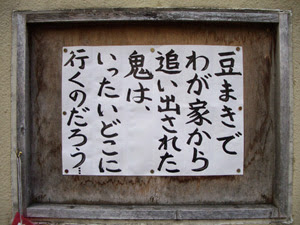 豆まきで
わが家から
追い出された
鬼は、
いったいどこに
行くのだろう…